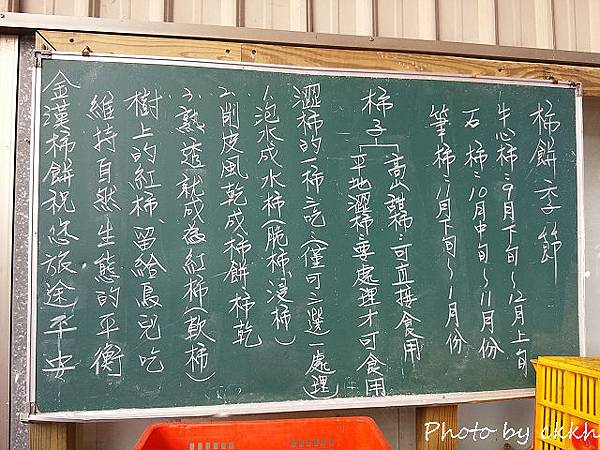 柿餅季節
牛心柿:9月下旬~12月上旬
石柿:10月中旬~11月份
筆柿:11月下旬~1月份
柿子
高山甜柿:可直接食用
平地澀柿:要處理才可食用
澀柿的一柿三吃(僅可三選一處理)
1.泡水成水柿(脆柿、浸柿)
2.削皮風乾成柿餅柿乾
3.熟透就成為紅柿(軟柿)
樹上的紅柿,留給鳥兒吃
維持自然生態的平衡
金漢柿餅祝您旅途平安
Photo by ckkh